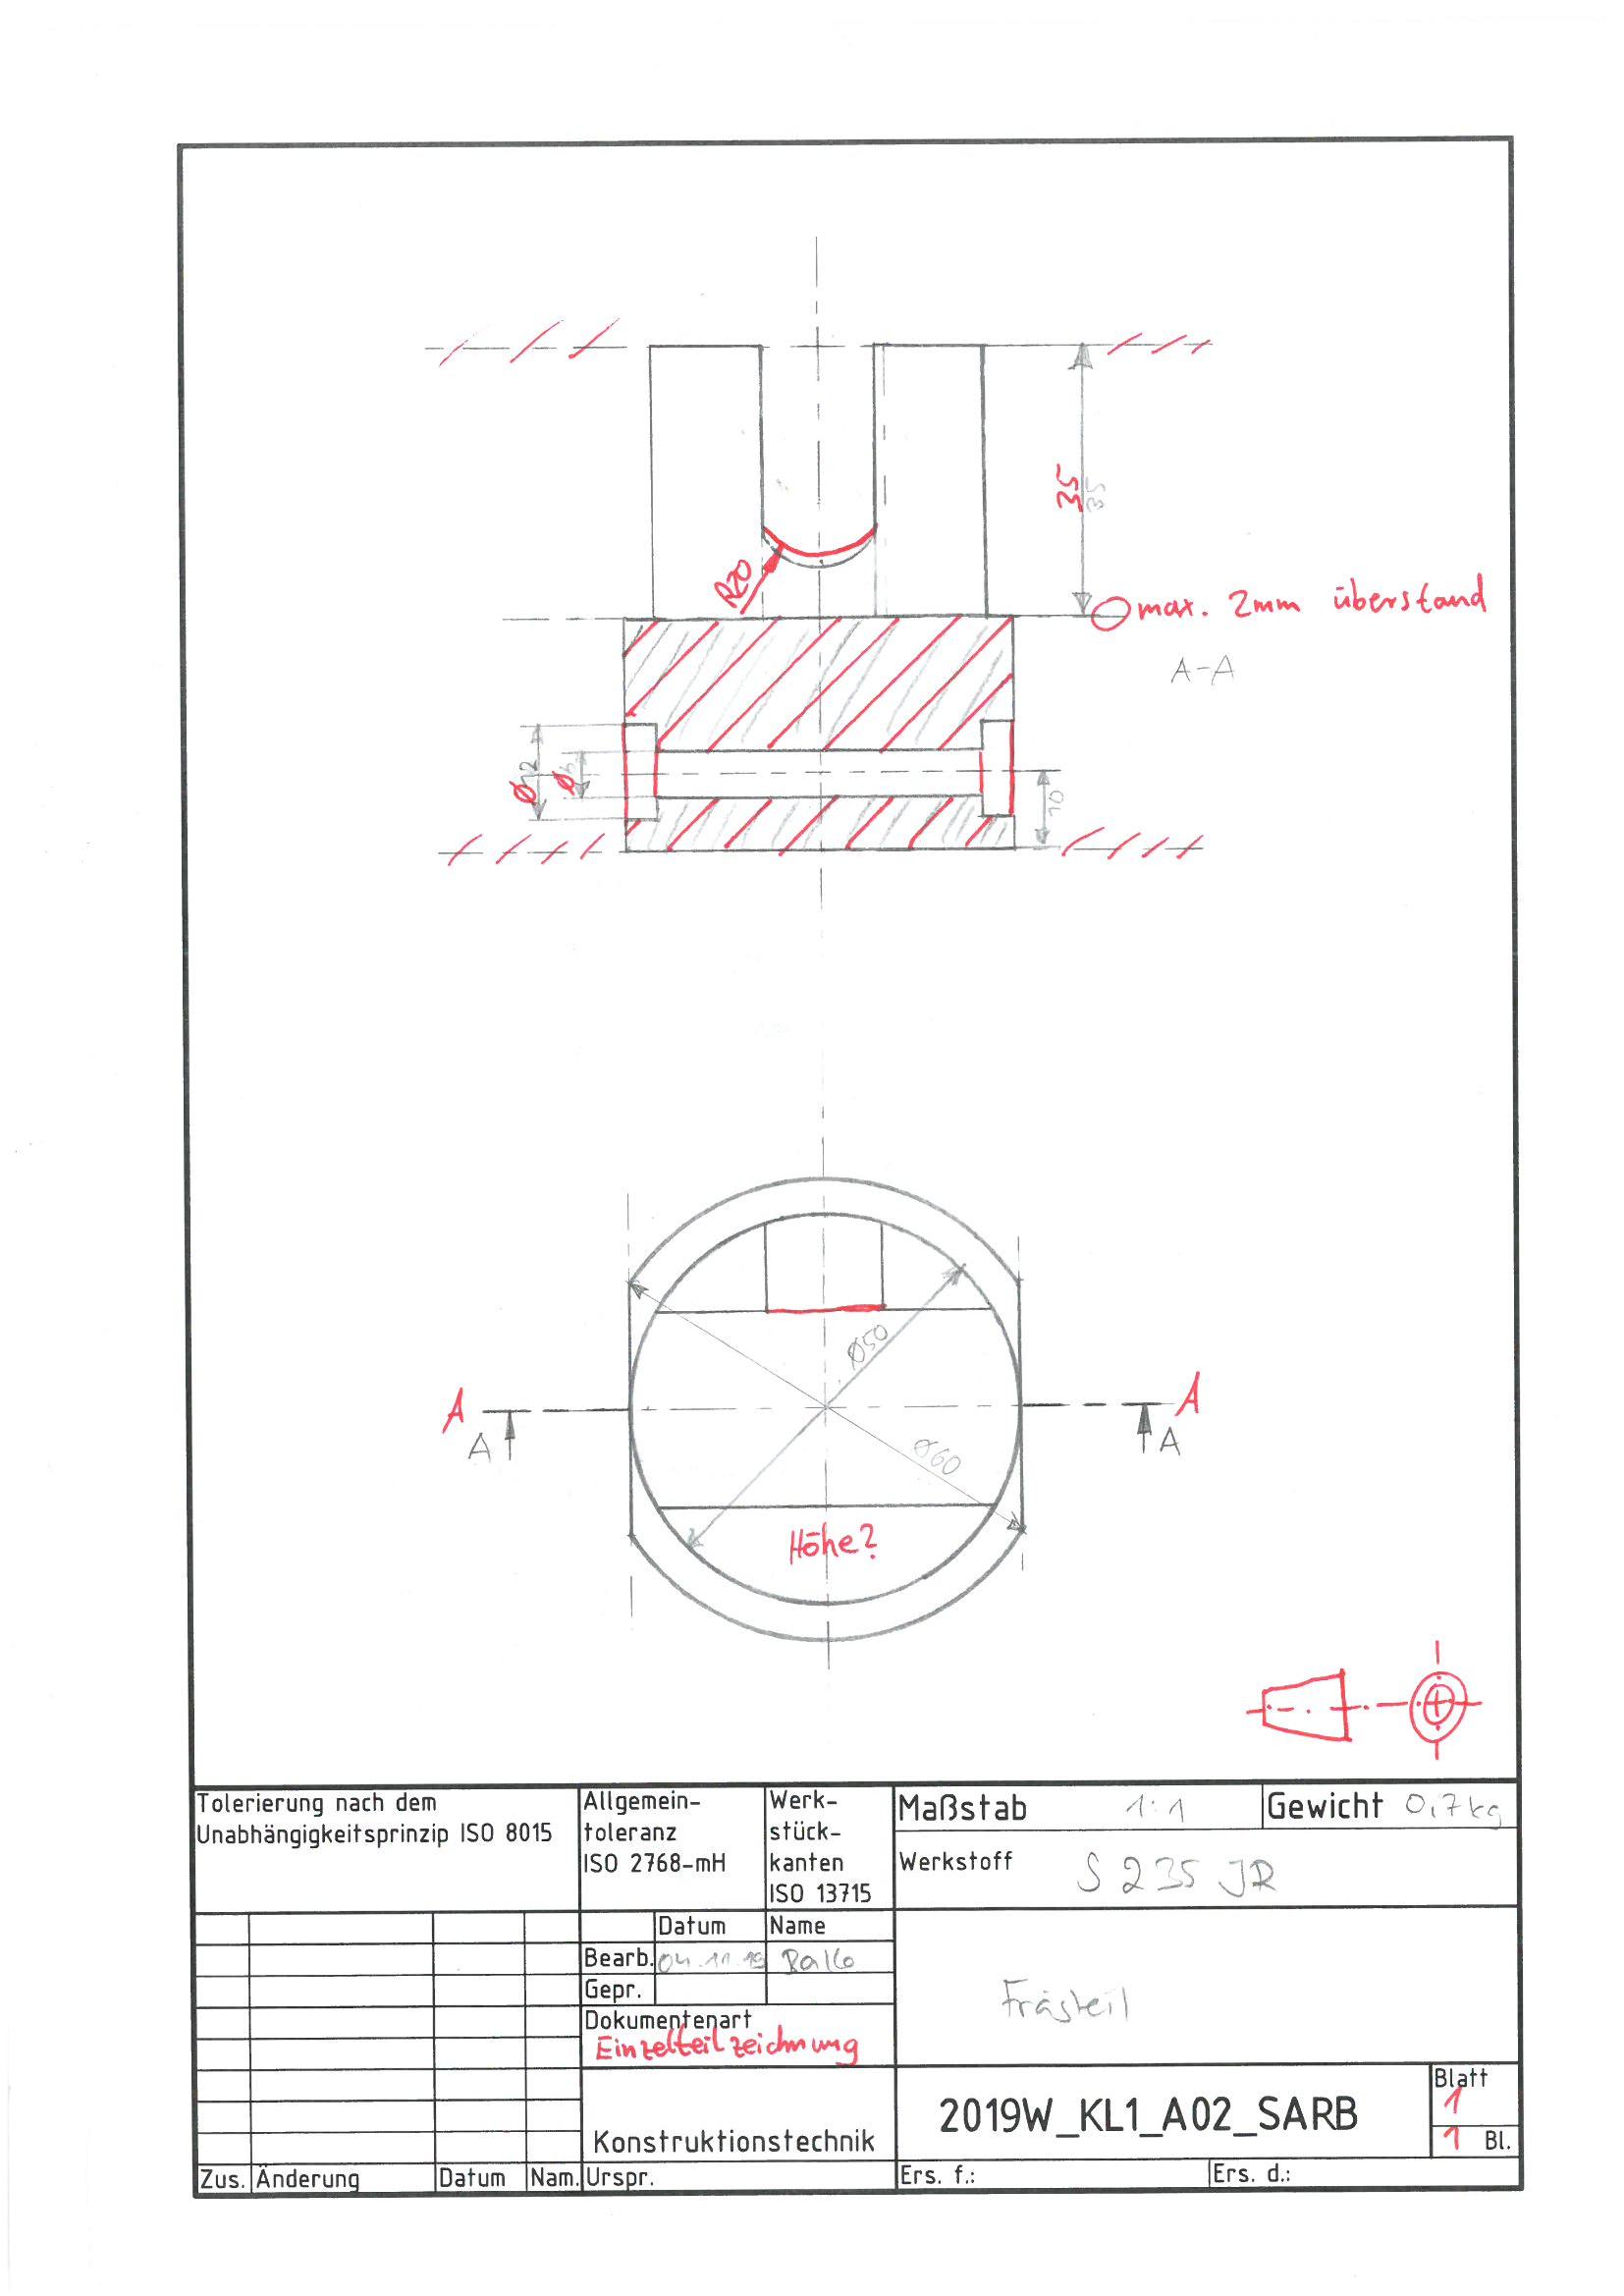 35
35
R20
max. 2mm überstand
A-A
ø12
ø6
10
ø50
A
A
A
A
ø60
Höhe?
Tolerierung nach dem
Unabhängigkeitsprinzip ISO 8015
Allgemein-
toleranz
ISO 2768-mH
Werk-
stück-
kanten
ISO 13715
Maßstab 1:1
Gewicht 0,7kg
Werkstoff S 235 JR
Datum Name
Bearb. 04.11.19
Gepr.
Dokumentenart
Einzelteilzeichnung
Frästeil
Konstruktionstechnik
2019W_KL1_A02_SARB
Blatt
1
1 Bl.
Zus. Änderung Datum Nam. Urspr.
Ers. f.: Ers. d.: